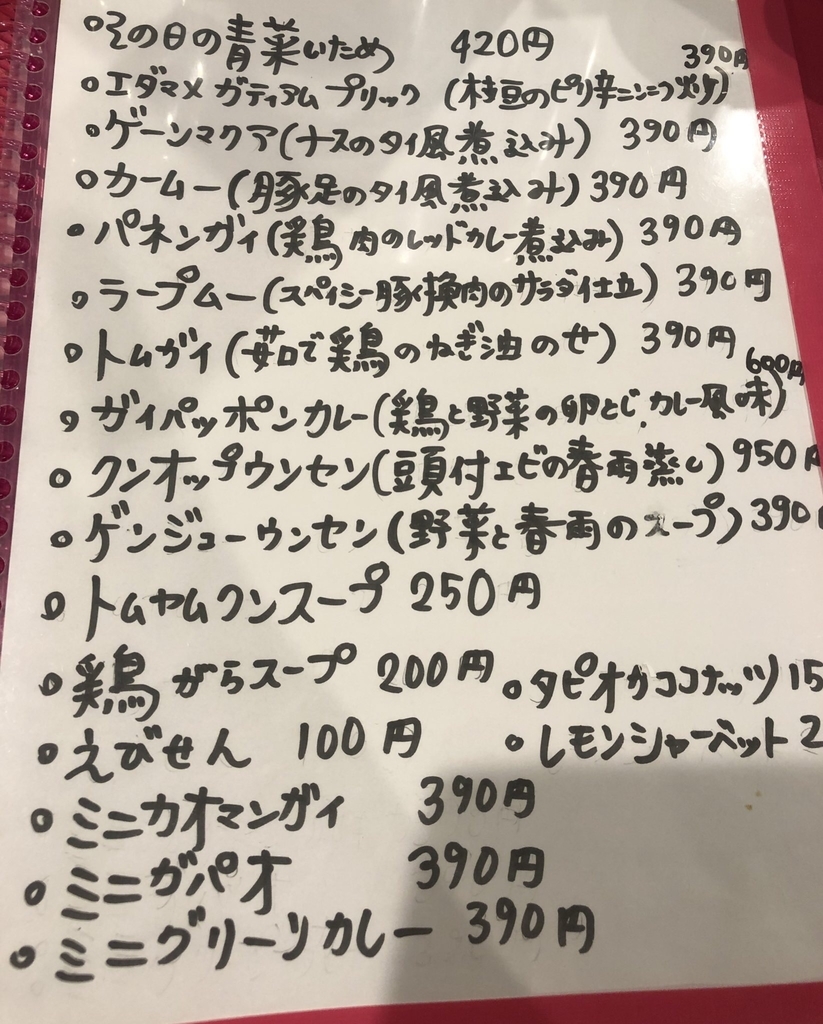 ◦その日の青菜いため 420円
◦エダマメ ガティアム プリック (枝豆のピリ辛ニンニク炒め) 390円
◦ゲーンマクア(ナスのタイ風煮込み) 390円
◦カームー(豚足のタイ風煮込み) 390円
◦パネンガイ(鶏肉のレッドカレー煮込み) 390円
◦ラープムー(スパイシー豚挽肉のサラダ仕立) 390円
◦トムガイ(茹で鶏のねぎ油のせ) 390円
◦ガイパッポンカレー(鶏と野菜の卵とじ.カレー風味) 600円
◦クンオップウンセン(頭付エビの春雨蒸し) 950円
◦ゲンジューウンセン(野菜と春雨のスープ) 390
◦トムヤムクンスープ 250円
◦鶏がらスープ 200円 ◦タピオカココナッツ 15
◦えびせん 100円 ◦レモンシャーベット 2
◦ミニカオマンガイ 390円
◦ミニガパオ 390円
◦ミニグリーンカレー 390円